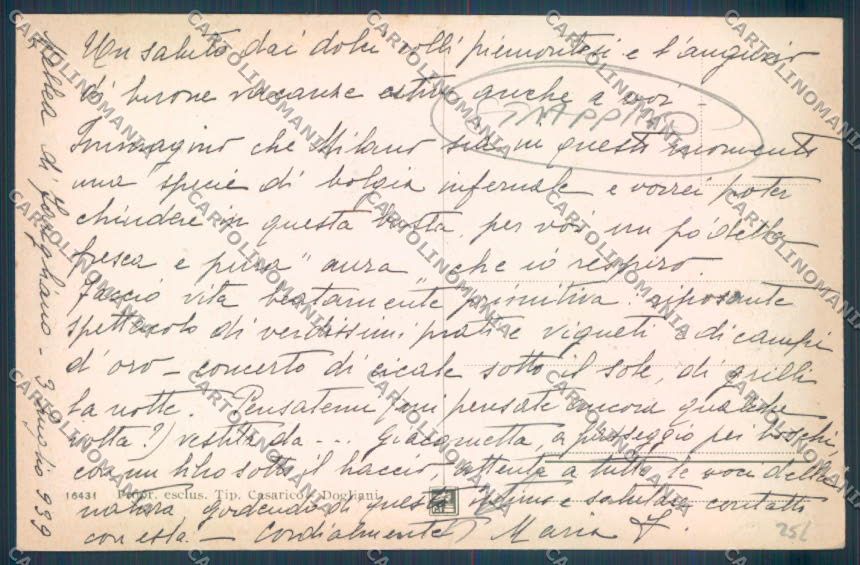 Un saluto dai dolci colli piemontesi e l'augurio
di buone vacanze estive anche a voi -
STRAPPINO
Immagino che Milano sia in questo momento
una specie di bolgia infernale e vorrei poter
chiudere in questa busta, per voi un po' della
fresca e pura "aura" che io respiro.
Faccio vita "beatamente" primitiva: riposante
spettacolo di verdissimi prati e vigneti e di campi
d'oro - concerto di cicale sotto il sole, di grilli
la notte. Pensatemi (mi pensate ancora qualche
volta?) vestita da ... Giacometta, a passeggio pei boschi,
con un libro sotto il braccio - attenta a tutte le voci della
natura, godendo di questo intimo e salutare contatto
con essa. - Cordialmente Maria F.
16431 Propr. esclus. Tip. Casarico - Dogliani
di - 3 Luglio 939
25L
CARTOLINOMANIA